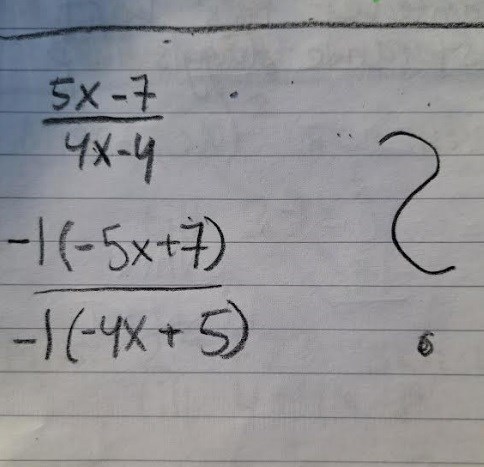 5x-7
4x-4
?
-1(-5x+7)
-1(-4x+5)